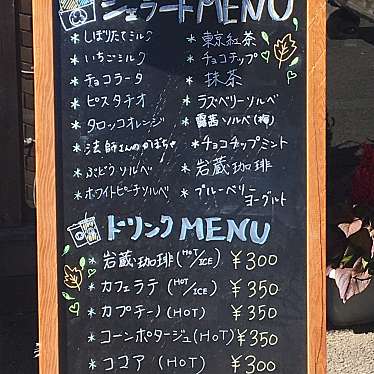 ジェラートMENU
* しぼりたてミルク
* いちごミルク
* チョコラータ
* ピスタチオ
* タロッコオレンジ
* 法師さんのかぼちゃ
* ぶどうソルベ
* ホワイトピーチソルベ
* 東京紅茶
* チョコチップ
* 抹茶
* ラズベリーソルベ
* 露茜ソルベ(梅)
* チョコチップミント
* 岩蔵珈琲
* ブルーベリー
ヨーグルト
ドリンクMENU
* 岩蔵珈琲(HOT/ICE) ¥300
* カフェラテ(HOT/ICE) ¥350
* カプチーノ(HOT) ¥350
* コーンポタージュ(HOT) ¥350
* ココア(HOT) ¥300